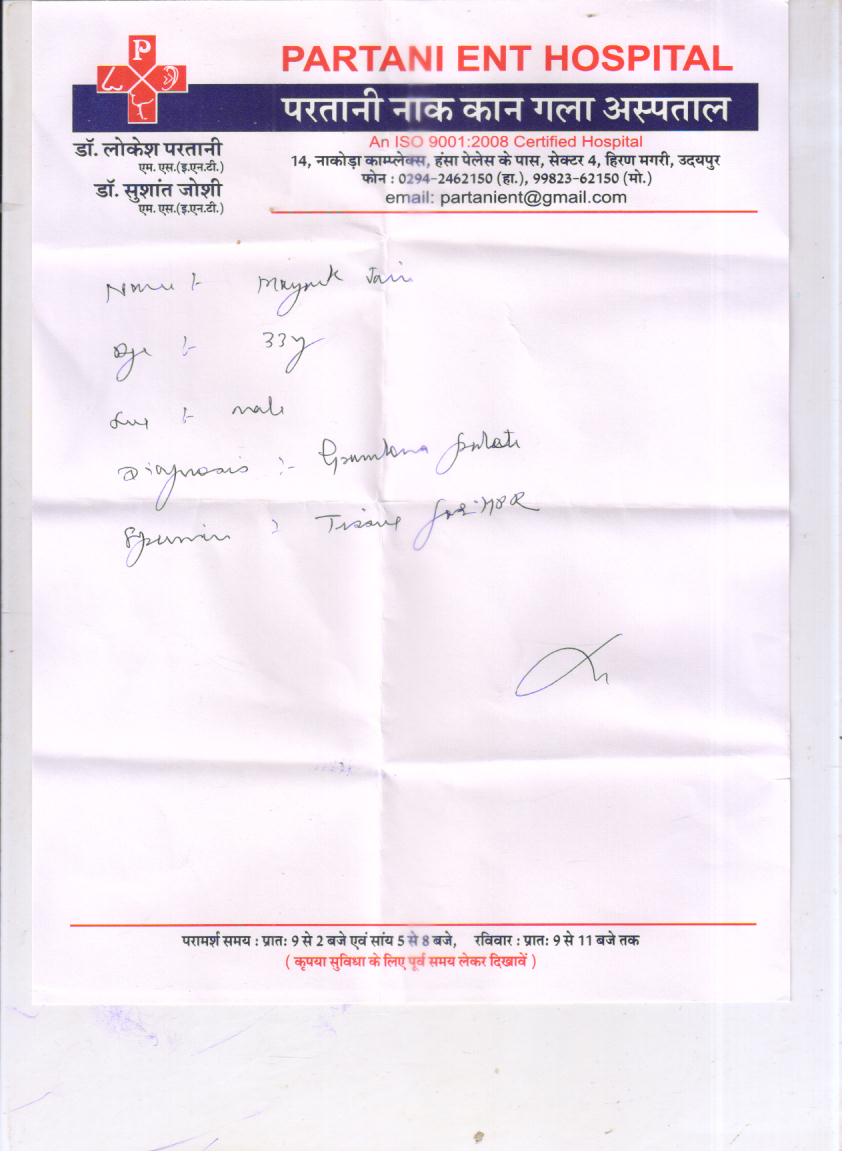 P
PARTANI ENT HOSPITAL
परतानी नाक कान गला अस्पताल
An ISO 9001:2008 Certified Hospital
डॉ. लोकेश परतानी
एम. एस.(इ.एन.टी.)
डॉ. सुशांत जोशी
एम. एस.(इ.एन.टी.)
14, नाकोड़ा काम्प्लेक्स, हंसा पेलेस के पास, सेक्टर 4, हिरण मगरी, उदयपुर
फोन : 0294-2462150 (हा.), 99823-62150 (मो.)
email: partanient@gmail.com
Name :- Mayank Jain
Age :- 33y
Sex :- male
Diagnosis :- palate
Specimen : Tissue for HPR
परामर्श समय : प्रातः 9 से 2 बजे एवं सांय 5 से 8 बजे, रविवार : प्रातः 9 से 11 बजे तक
( कृपया सुविधा के लिए पूर्व समय लेकर दिखावें )